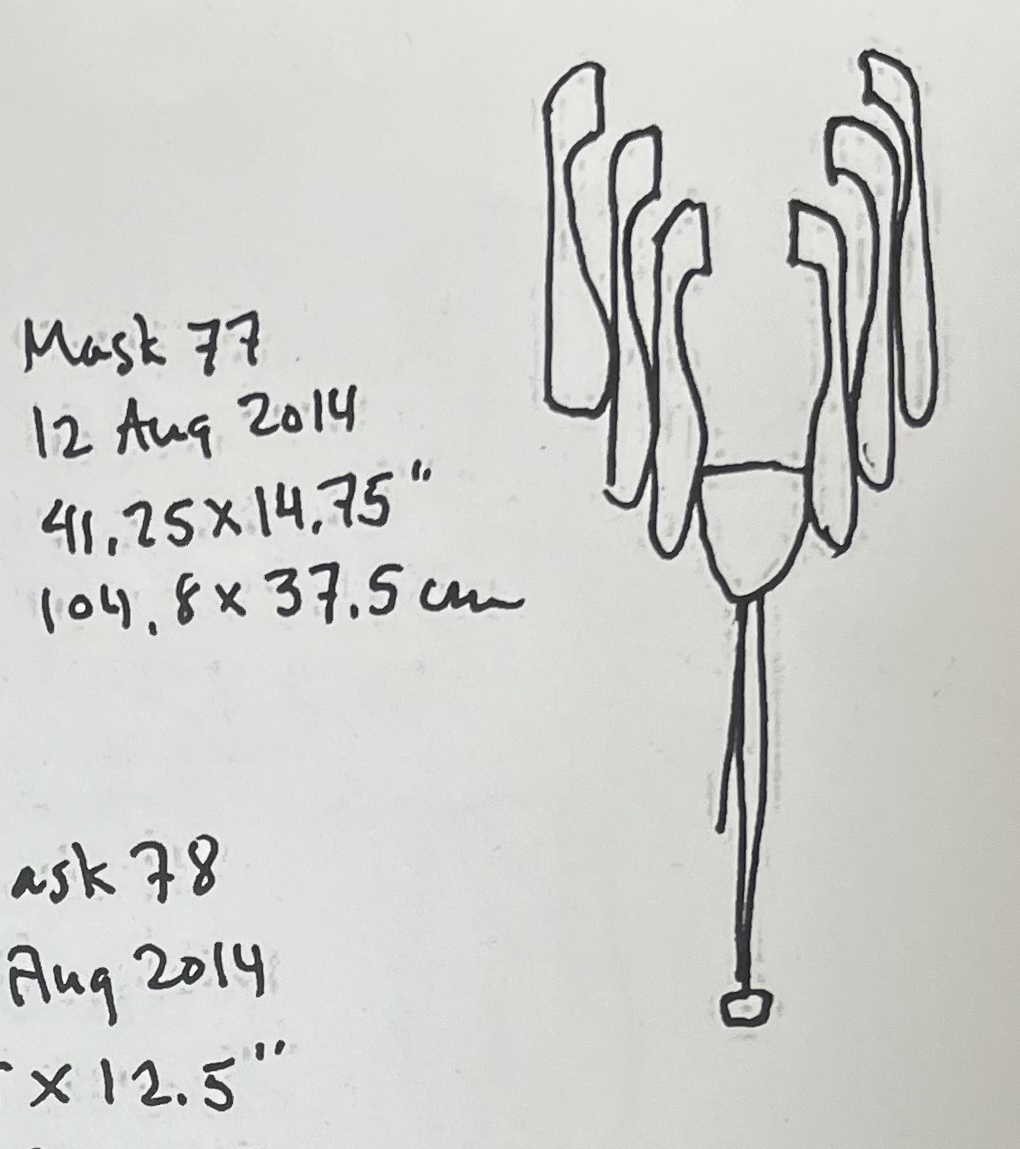 Mask 77
12 Aug 2014
41.25 x 14.75"
104.8 x 37.5 cm
ask 78
Aug 2014
x 12.5"